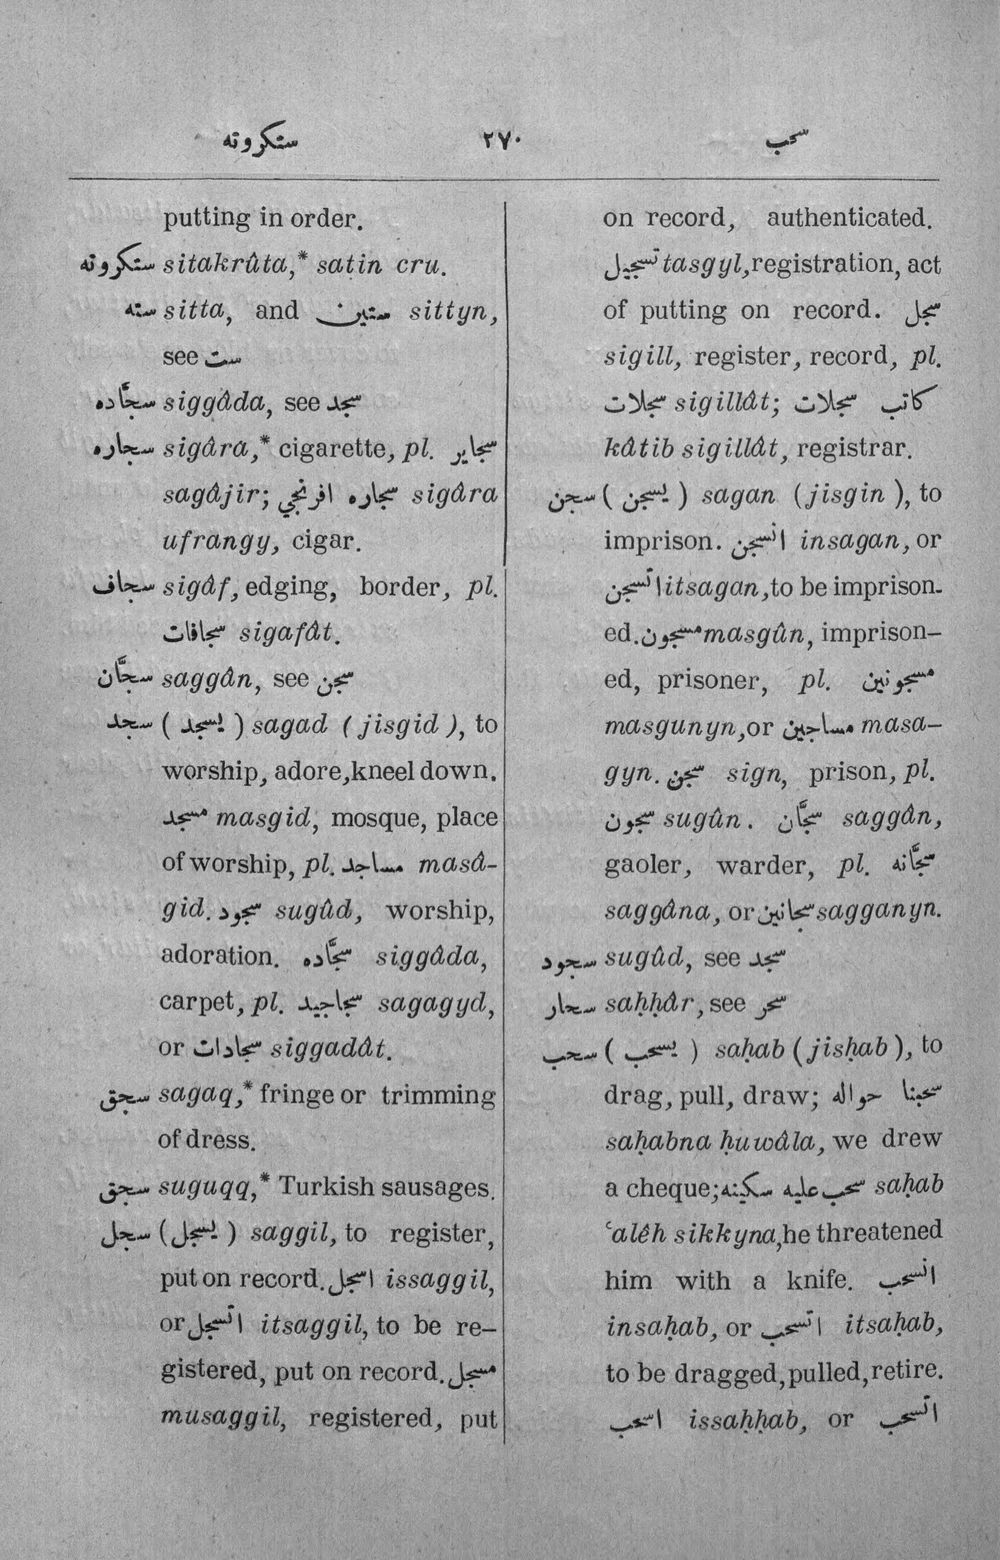 ستكروته ٢٧٠ سحب
putting in order.
ستكروته sitakrûta,* satin cru.
سته sitta, and ستين sittyn,
see ست
سجّاده siggâda, see سجد
سجاره sigâra,* cigarette, pl. سجاير
sagâjir; سجاره افرنجي sigâra
ufrangy, cigar.
سجاف sigâf, edging, border, pl.
سجافات sigafât.
سجّان saggân, see سجن
سجد ( يسجد ) sagad (jisgid), to
worship, adore, kneel down.
مسجد masgid, mosque, place
of worship, pl. مساجد masâ-
gid. سجود sugûd, worship,
adoration. سجّاده siggâda,
carpet, pl. سجاجيد sagagyd,
or سجادات siggadât.
سجق sagaq,* fringe or trimming
of dress.
سجق suguqq,* Turkish sausages.
سجل ( يسجل ) saggil, to register,
put on record. اسجل issaggil,
or اتسجل itsaggil, to be re-
gistered, put on record. مسجل
musaggil, registered, put
on record, authenticated.
تسجيل tasgyl, registration, act
of putting on record. سجل
sigill, register, record, pl.
سجلات sigillât; كاتب سجلات
kâtib sigillât, registrar.
سجن ( يسجن ) sagan (jisgin), to
imprison. انسجن insagan, or
اتسجن itsagan, to be imprison-
ed. مسجون masgûn, imprison-
ed, prisoner, pl. مسجونين
masgunyn, or مساجين masa-
gyn. سجن sign, prison, pl.
سجون sugûn. سجّان saggân,
gaoler, warder, pl. سجّانه
saggâna, or سجانين sagganyn.
سجود sugûd, see سجد
سحار saḥḥâr, see سحر
سحب ( يسحب ) saḥab (jisḥab), to
drag, pull, draw; سحبنا حواله
saḥabna ḥuwâla, we drew
a cheque; سحب عليه سكينه saḥab
ʿalêh sikkyna, he threatened
him with a knife. انسحب
insaḥab, or اتسحب itsaḥab,
to be dragged, pulled, retire.
اسحب issaḥḥab, or اتسحب